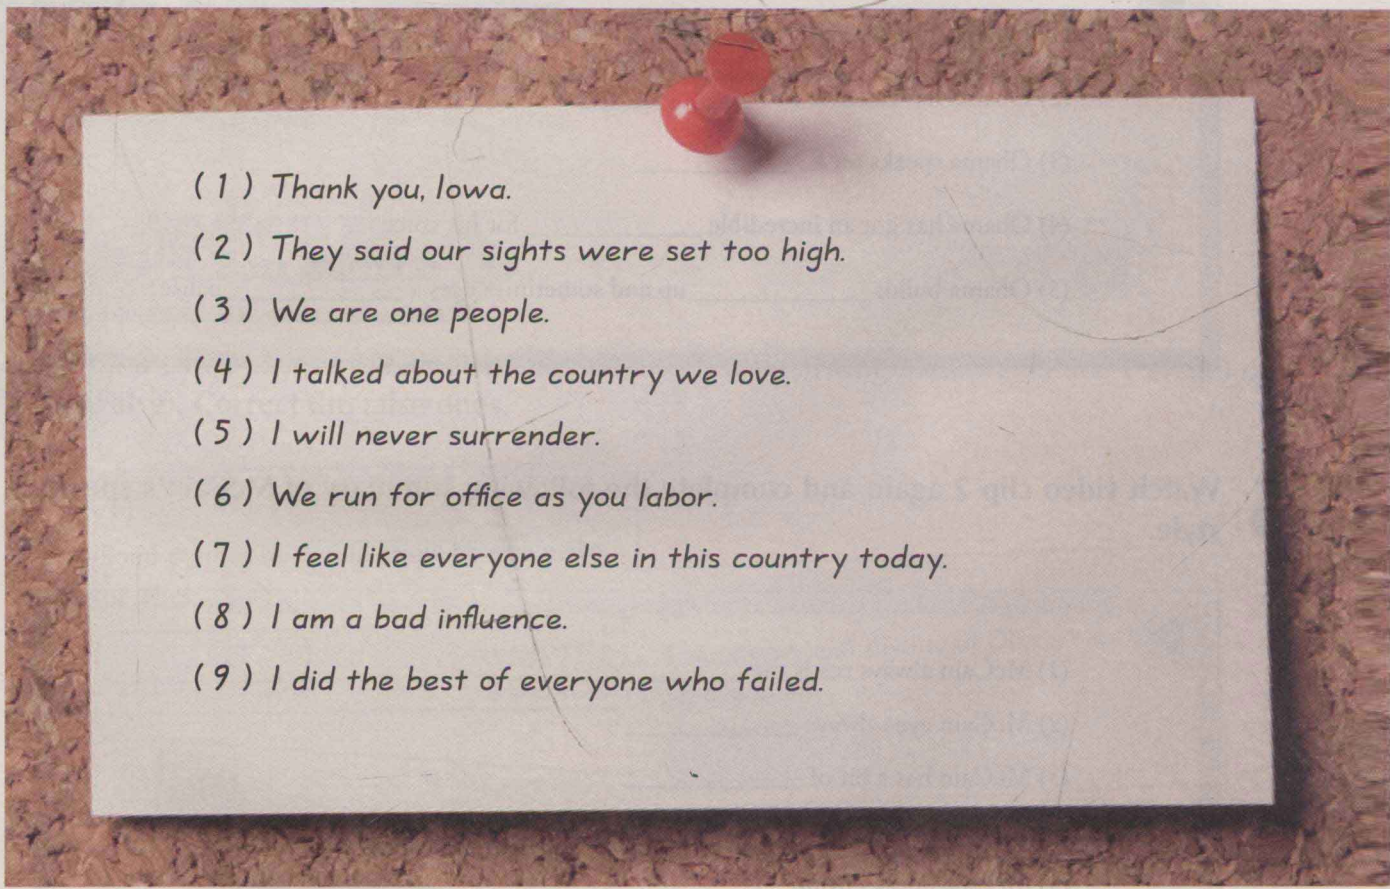 ( 1 ) Thank you, Iowa.
( 2 ) They said our sights were set too high.
( 3 ) We are one people.
( 4 ) I talked about the country we love.
( 5 ) I will never surrender.
( 6 ) We run for office as you labor.
( 7 ) I feel like everyone else in this country today.
( 8 ) I am a bad influence.
( 9 ) I did the best of everyone who failed.